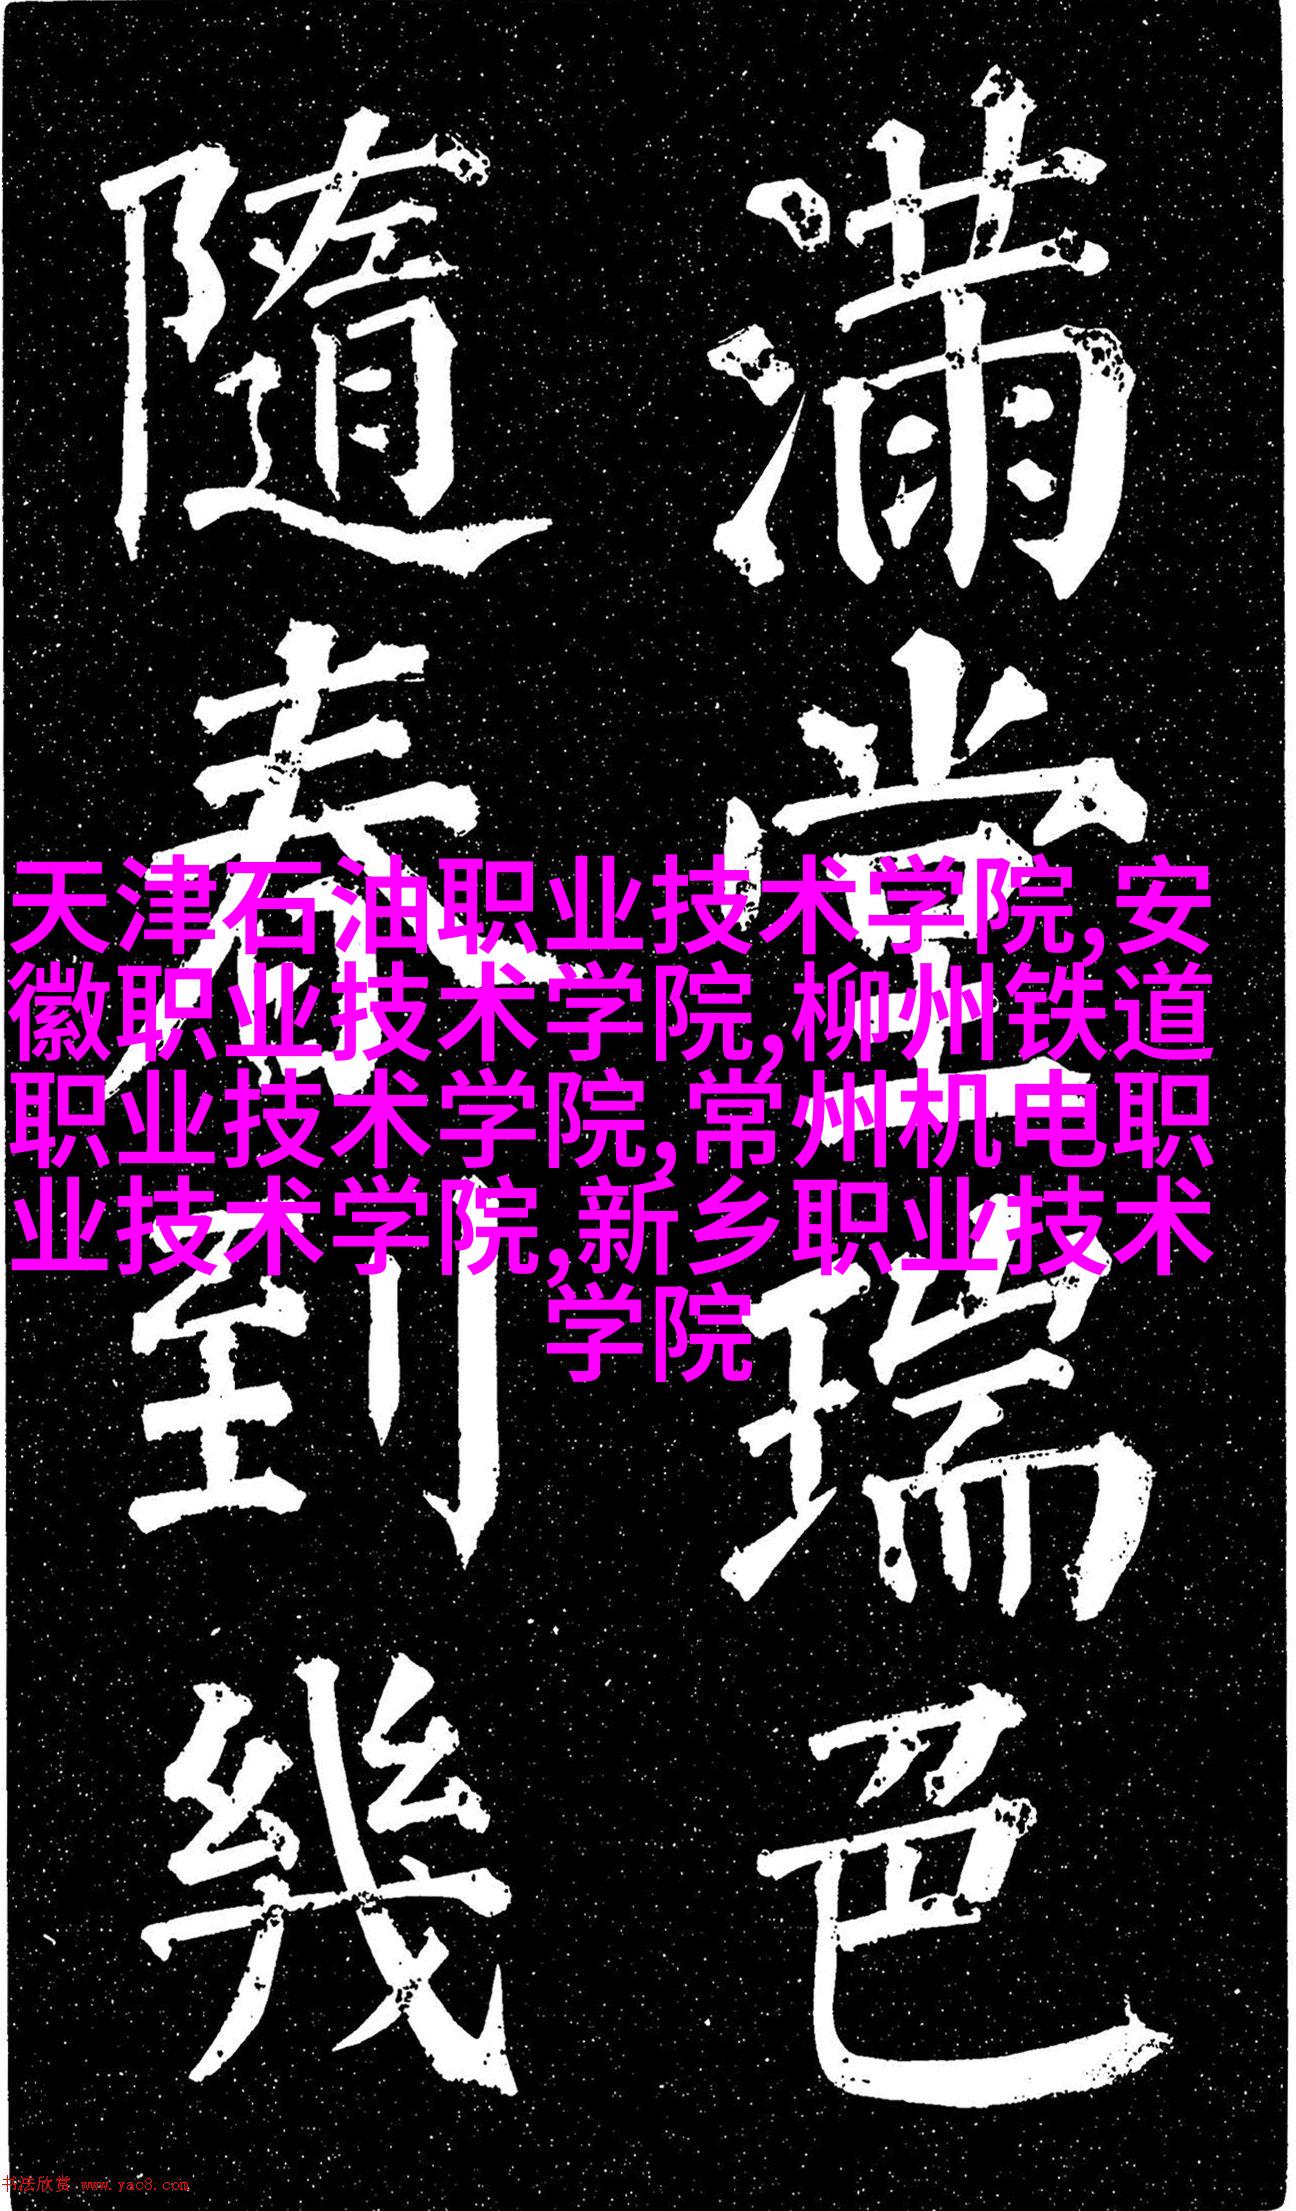 满堂瑞色
随春到几
天津石油职业技术学院,安
徽职业技术学院,柳州铁道
职业技术学院,常州机电职
业技术学院,新乡职业技术
学院
书法欣赏 www.yac8.com